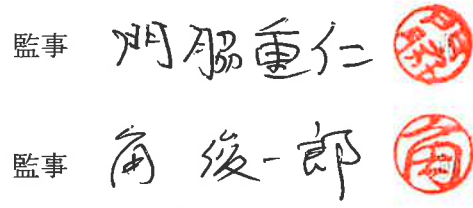 監事 門脇重仁 門脇
監事 角 俊一郎 角